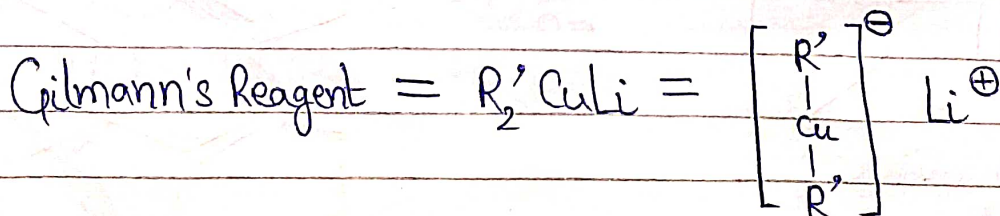 Gilmann's Reagent = R₂'CuLi = [R'-Cu-R']⊖ Li⊕